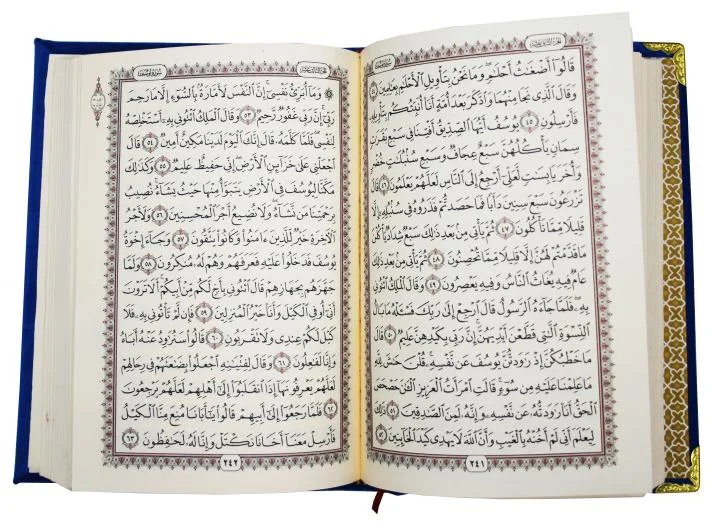 الجزء الثاني عشر سورة يوسف
قَالُوٓاْ أَضْغَٰثُ أَحْلَٰمٖۖ وَمَا نَحْنُ بِتَأْوِيلِ ٱلْأَحْلَٰمِ بِعَٰلِمِينَ ٤٤
وَقَالَ ٱلَّذِي نَجَا مِنْهُمَا وَٱدَّكَرَ بَعْدَ أُمَّةٍ أَنَا۠ أُنَبِّئُكُم بِتَأْوِيلِهِۦ
فَأَرْسِلُونِ ٤٥ يُوسُفُ أَيُّهَا ٱلصِّدِّيقُ أَفْتِنَا فِي سَبْعِ بَقَرَٰتٖ
سِمَانٖ يَأْكُلُهُنَّ سَبْعٌ عِجَافٞ وَسَبْعِ سُنۢبُلَٰتٍ خُضْرٖ
وَأُخَرَ يَابِسَٰتٖ لَّعَلِّيٓ أَرْجِعُ إِلَى ٱلنَّاسِ لَعَلَّهُمْ يَعْلَمُونَ ٤٦ قَالَ
تَزْرَعُونَ سَبْعَ سِنِينَ دَأَبٗا فَمَا حَصَدتُّمْ فَذَرُوهُ فِي سُنۢبُلِهِۦٓ إِلَّا
قَلِيلٗا مِّمَّا تَأْكُلُونَ ٤٧ ثُمَّ يَأْتِي مِنۢ بَعْدِ ذَٰلِكَ سَبْعٞ شِدَادٞ يَأْكُلْنَ
مَا قَدَّمْتُمْ لَهُنَّ إِلَّا قَلِيلٗا مِّمَّا تُحْصِنُونَ ٤٨ ثُمَّ يَأْتِي مِنۢ بَعْدِ ذَٰلِكَ
عَامٞ فِيهِ يُغَاثُ ٱلنَّاسُ وَفِيهِ يَعْصِرُونَ ٤٩ وَقَالَ ٱلْمَلِكُ ٱئْتُونِي
بِهِۦۖ فَلَمَّا جَآءَهُ ٱلرَّسُولُ قَالَ ٱرْجِعْ إِلَىٰ رَبِّكَ فَسْـَٔلْهُ مَا بَالُ
ٱلنِّسْوَةِ ٱلَّٰتِي قَطَّعْنَ أَيْدِيَهُنَّۚ إِنَّ رَبِّي بِكَيْدِهِنَّ عَلِيمٞ ٥٠ قَالَ
مَا خَطْبُكُنَّ إِذْ رَٰوَدتُّنَّ يُوسُفَ عَن نَّفْسِهِۦۚ قُلْنَ حَٰشَ لِلَّهِ
مَا عَلِمْنَا عَلَيْهِ مِن سُوٓءٖۚ قَالَتِ ٱمْرَأَتُ ٱلْعَزِيزِ ٱلْـَٰٔنَ حَصْحَصَ
ٱلْحَقُّ أَنَا۠ رَٰوَدتُّهُۥ عَن نَّفْسِهِۦ وَإِنَّهُۥ لَمِنَ ٱلصَّٰدِقِينَ ٥١ ذَٰلِكَ
لِيَعْلَمَ أَنِّي لَمْ أَخُنْهُ بِٱلْغَيْبِ وَأَنَّ ٱللَّهَ لَا يَهْدِي كَيْدَ ٱلْخَآئِنِينَ ٥٢
٢٤١
سورة يوسف
وَمَآ أُبَرِّئُ نَفْسِيٓۚ إِنَّ ٱلنَّفْسَ لَأَمَّارَةُۢ بِٱلسُّوٓءِ إِلَّا مَا رَحِمَ
رَبِّيٓۚ إِنَّ رَبِّي غَفُورٞ رَّحِيمٞ ٥٣ وَقَالَ ٱلْمَلِكُ ٱئْتُونِي بِهِۦٓ أَسْتَخْلِصْهُ
لِنَفْسِيۖ فَلَمَّا كَلَّمَهُۥ قَالَ إِنَّكَ ٱلْيَوْمَ لَدَيْنَا مَكِينٌ أَمِينٞ ٥٤ قَالَ
ٱجْعَلْنِي عَلَىٰ خَزَآئِنِ ٱلْأَرْضِۖ إِنِّي حَفِيظٌ عَلِيمٞ ٥٥ وَكَذَٰلِكَ
مَكَّنَّا لِيُوسُفَ فِي ٱلْأَرْضِ يَتَبَوَّأُ مِنْهَا حَيْثُ يَشَآءُۚ نُصِيبُ
بِرَحْمَتِنَا مَن نَّشَآءُۖ وَلَا نُضِيعُ أَجْرَ ٱلْمُحْسِنِينَ ٥٦ وَلَأَجْرُ
ٱلْأٓخِرَةِ خَيْرٞ لِّلَّذِينَ ءَامَنُواْ وَكَانُواْ يَتَّقُونَ ٥٧ وَجَآءَ إِخْوَةُ
يُوسُفَ فَدَخَلُواْ عَلَيْهِ فَعَرَفَهُمْ وَهُمْ لَهُۥ مُنكِرُونَ ٥٨ وَلَمَّا
جَهَّزَهُم بِجَهَازِهِمْ قَالَ ٱئْتُونِي بِأَخٖ لَّكُم مِّنْ أَبِيكُمْۚ أَلَا تَرَوْنَ
أَنِّيٓ أُوفِي ٱلْكَيْلَ وَأَنَا۠ خَيْرُ ٱلْمُنزِلِينَ ٥٩ فَإِن لَّمْ تَأْتُونِي بِهِۦ فَلَا
كَيْلَ لَكُمْ عِندِي وَلَا تَقْرَبُونِ ٦٠ قَالُواْ سَنُرَٰوِدُ عَنْهُ أَبَاهُ
وَإِنَّا لَفَٰعِلُونَ ٦١ وَقَالَ لِفِتْيَٰنِهِ ٱجْعَلُواْ بِضَٰعَتَهُمْ فِي رِحَالِهِمْ
لَعَلَّهُمْ يَعْرِفُونَهَآ إِذَا ٱنقَلَبُوٓاْ إِلَىٰٓ أَهْلِهِمْ لَعَلَّهُمْ يَرْجِعُونَ
٦٢ فَلَمَّا رَجَعُوٓاْ إِلَىٰٓ أَبِيهِمْ قَالُواْ يَٰٓأَبَانَا مُنِعَ مِنَّا ٱلْكَيْلُ
فَأَرْسِلْ مَعَنَآ أَخَانَا نَكْتَلْ وَإِنَّا لَهُۥ لَحَٰفِظُونَ ٦٣
٢٤٢